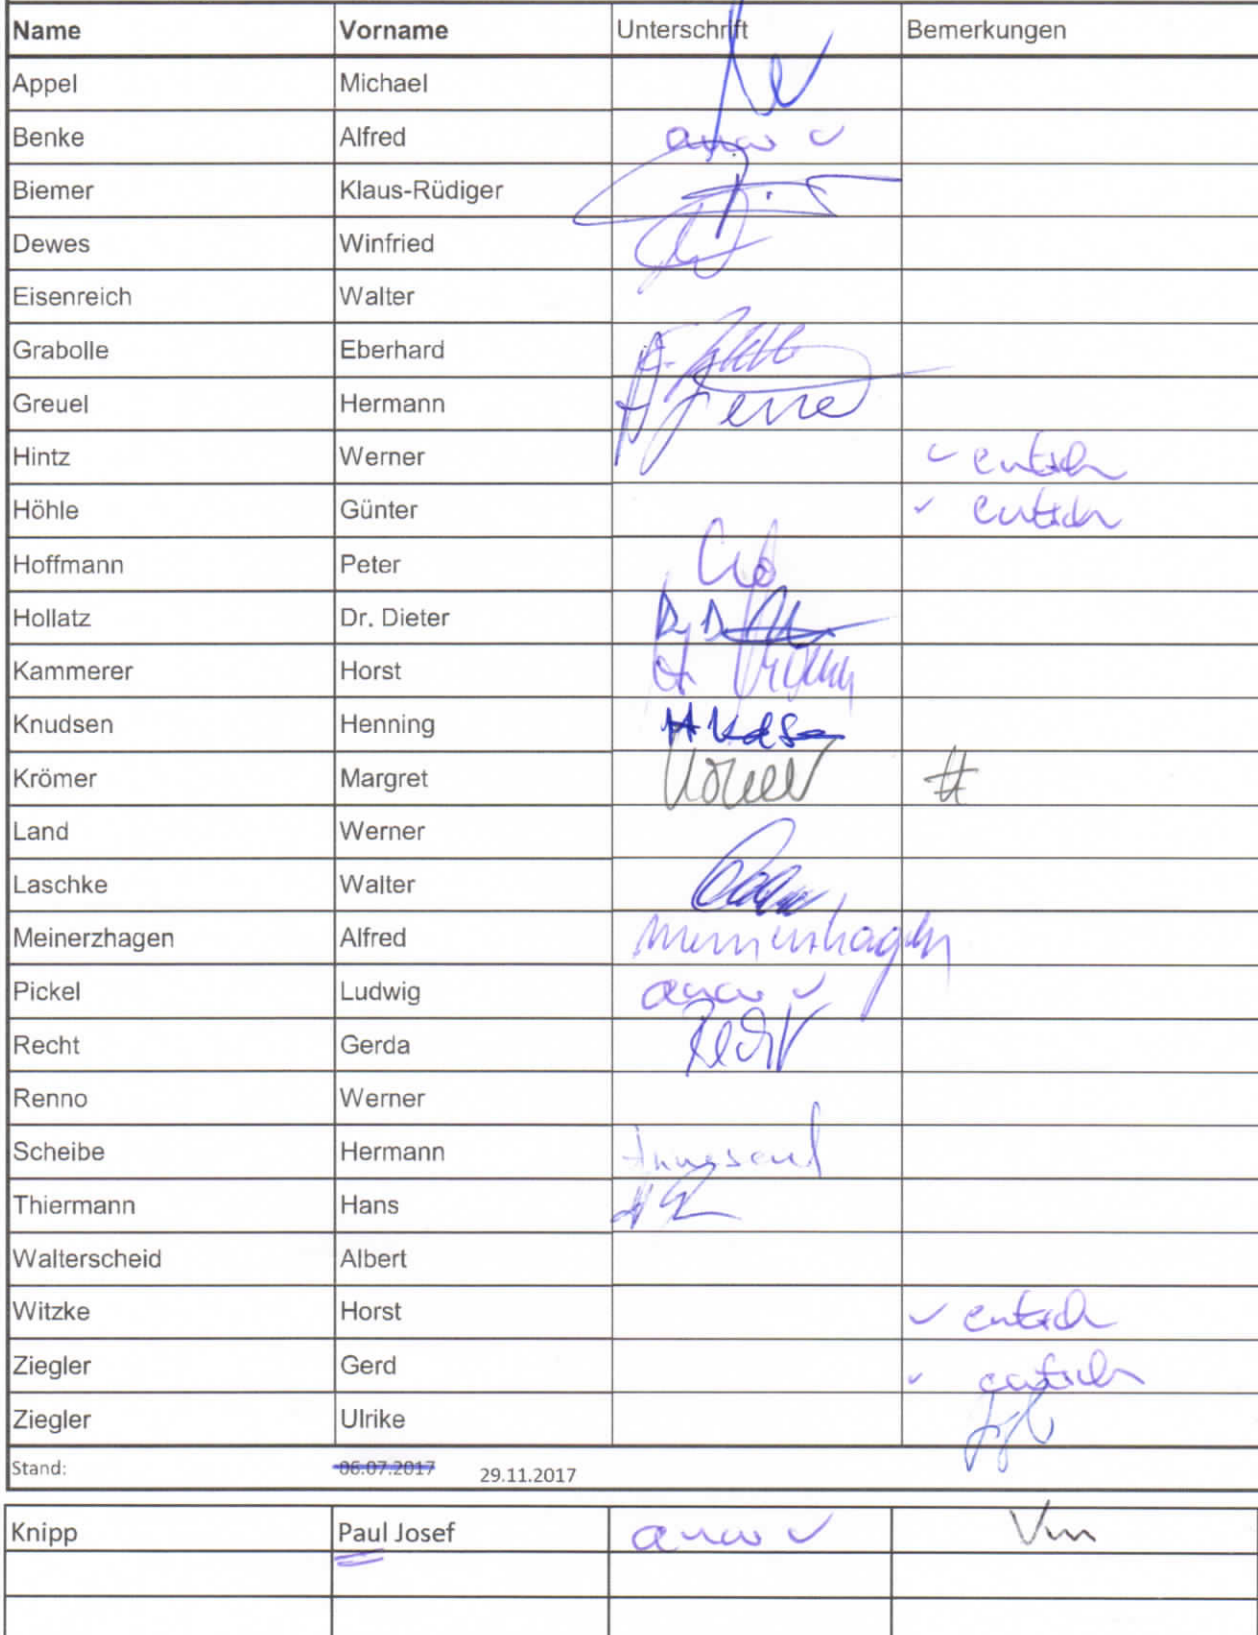 Name Vorname Unterschrift Bemerkungen
Appel Michael
Benke Alfred anw ✓
Biemer Klaus-Rüdiger
Dewes Winfried
Eisenreich Walter
Grabolle Eberhard
Greuel Hermann
Hintz Werner ✓ entsch
Höhle Günter ✓ entsch
Hoffmann Peter
Hollatz Dr. Dieter
Kammerer Horst
Knudsen Henning
Krömer Margret
Land Werner
Laschke Walter
Meinerzhagen Alfred Meinerzhagen
Pickel Ludwig anw ✓
Recht Gerda Recht
Renno Werner
Scheibe Hermann Anwesend
Thiermann Hans
Walterscheid Albert
Witzke Horst ✓ entsch
Ziegler Gerd ✓ entsch
Ziegler Ulrike
Stand: 06.07.2017 29.11.2017
Knipp Paul Josef anw ✓